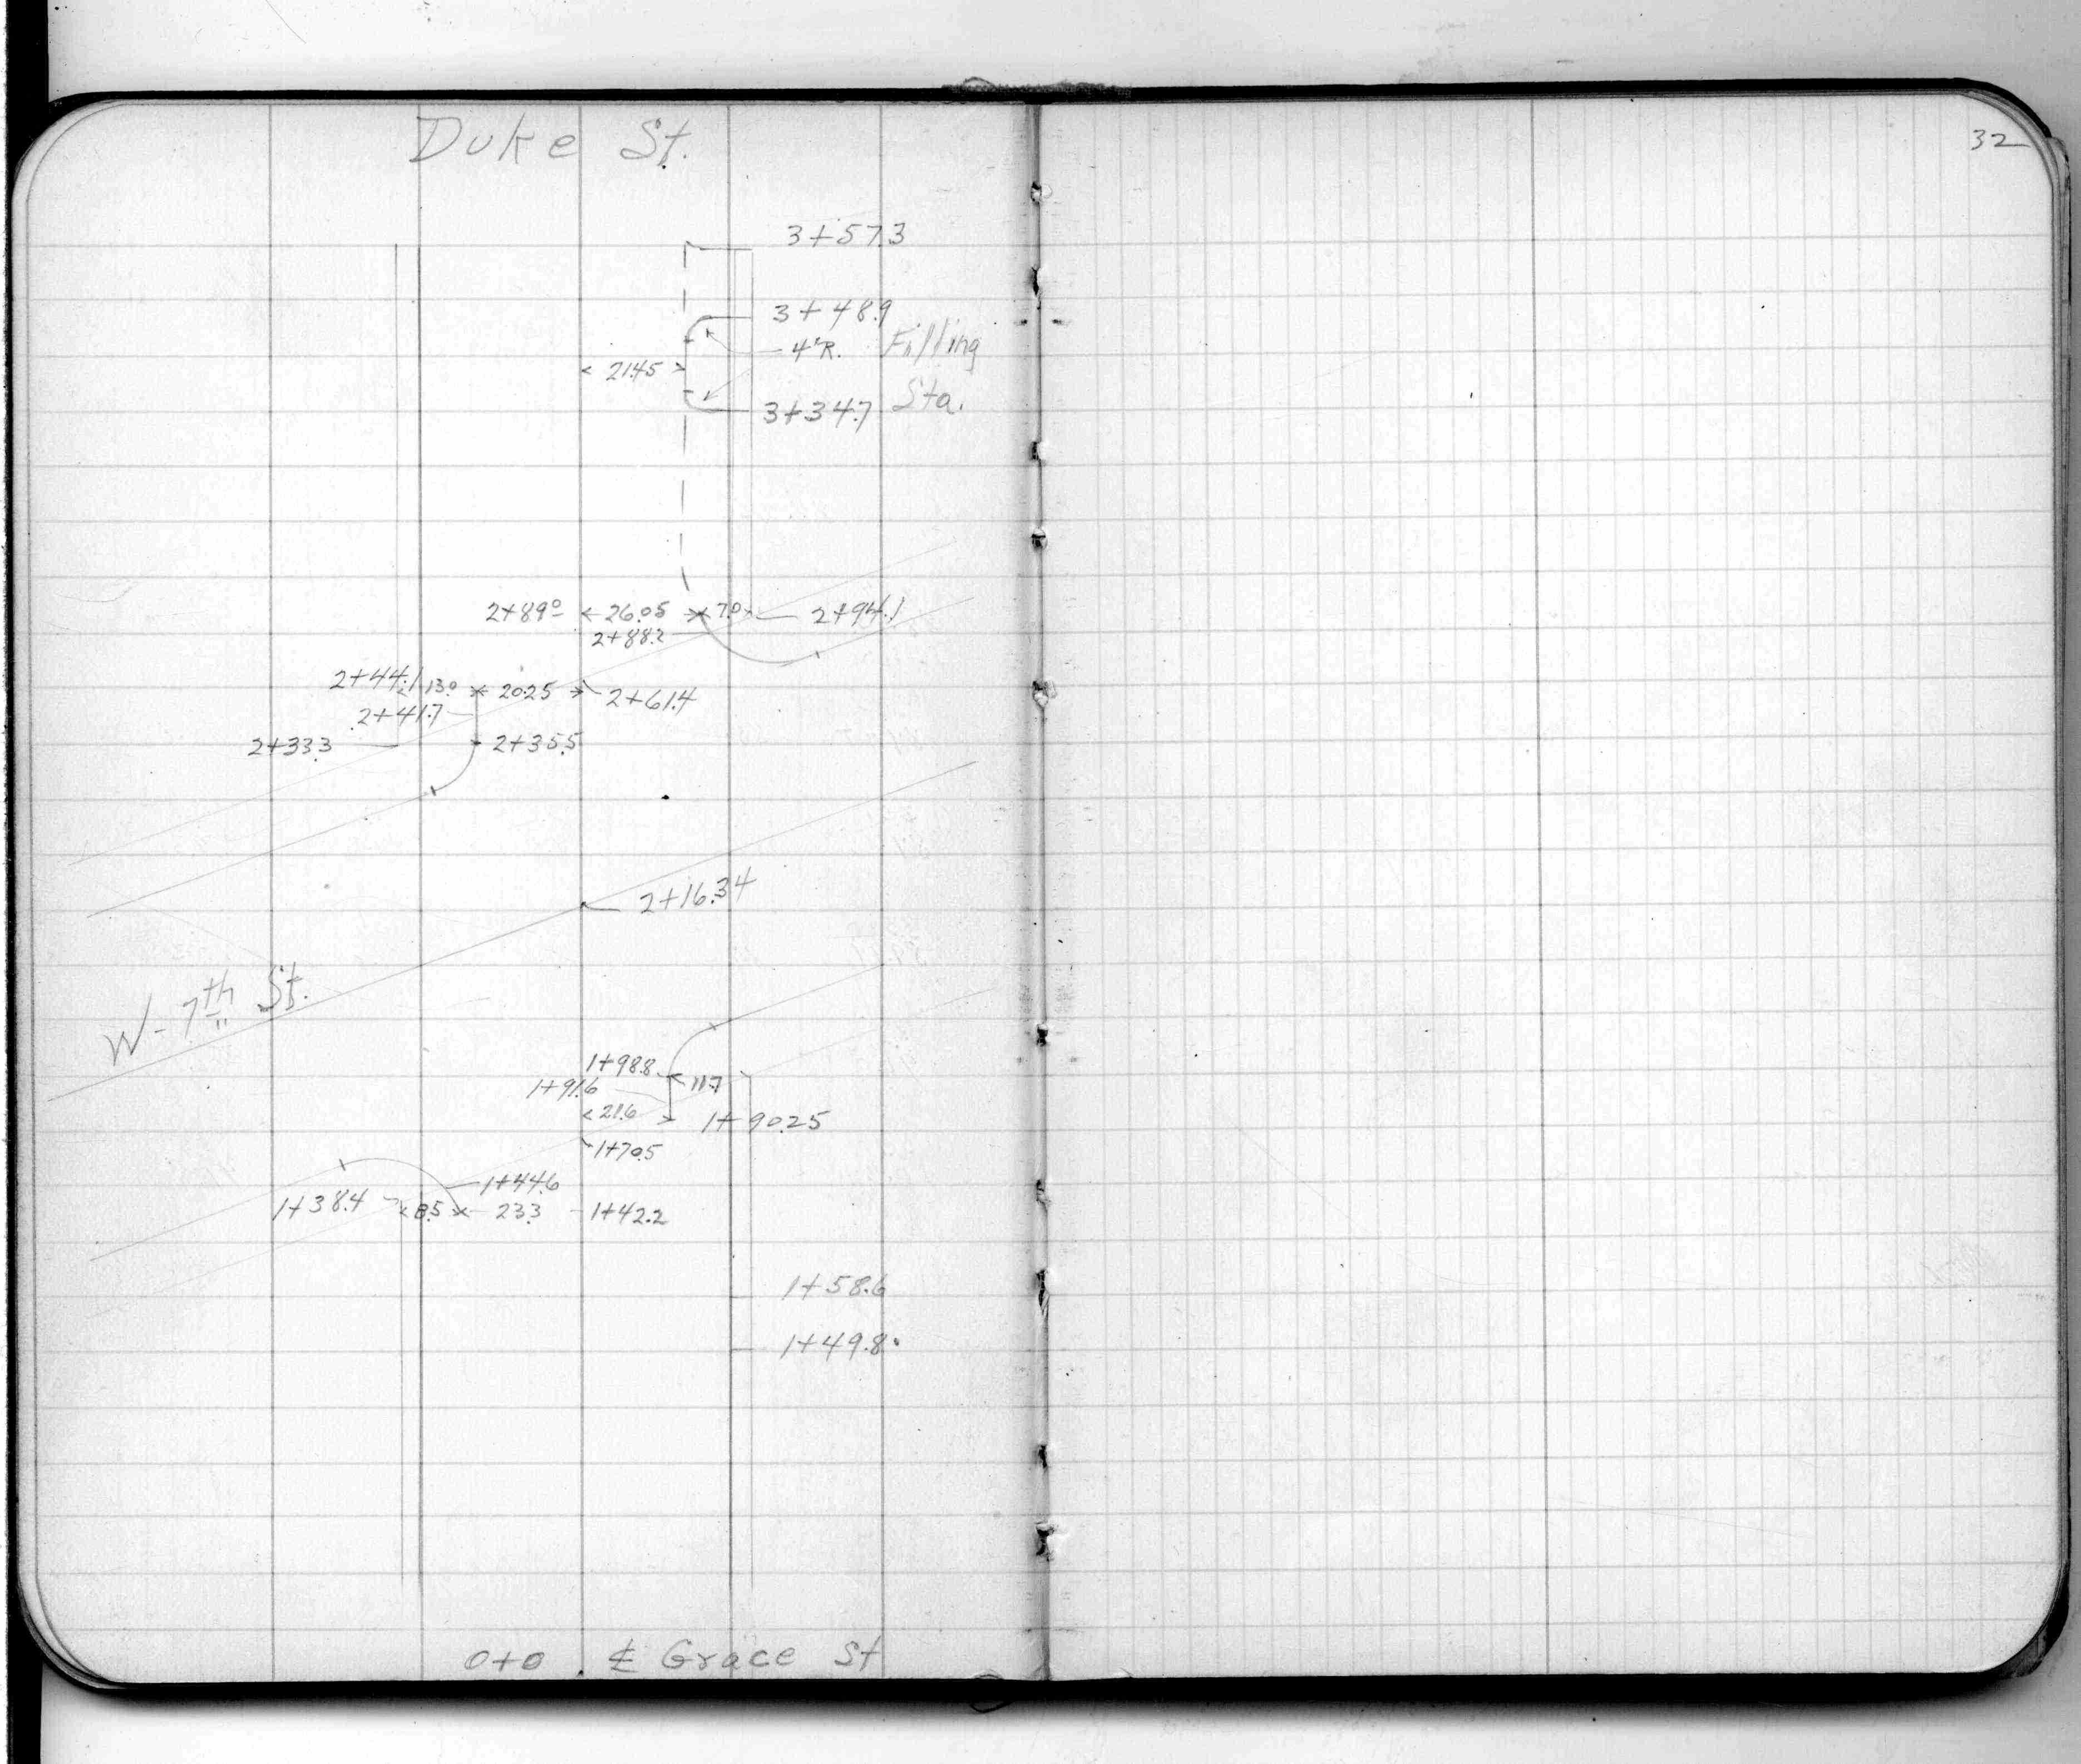 Duke St.
32
3+57.3
3+48.9
4'R. Filling
21.45
3+34.7 Sta.
2+89.0 26.05 7.0 2+94.1
2+88.2
2+44.1 13.0 20.25 2+61.4
2+41.7
2+33.3 2+35.5
2+16.34
W-7th St.
1+98.8 11.7
1+91.6
21.6 1+90.25
1+70.5
1+44.6
1+38.4 8.5 23.3 1+42.2
1+58.6
1+49.8
0+0 ℄ Grace St